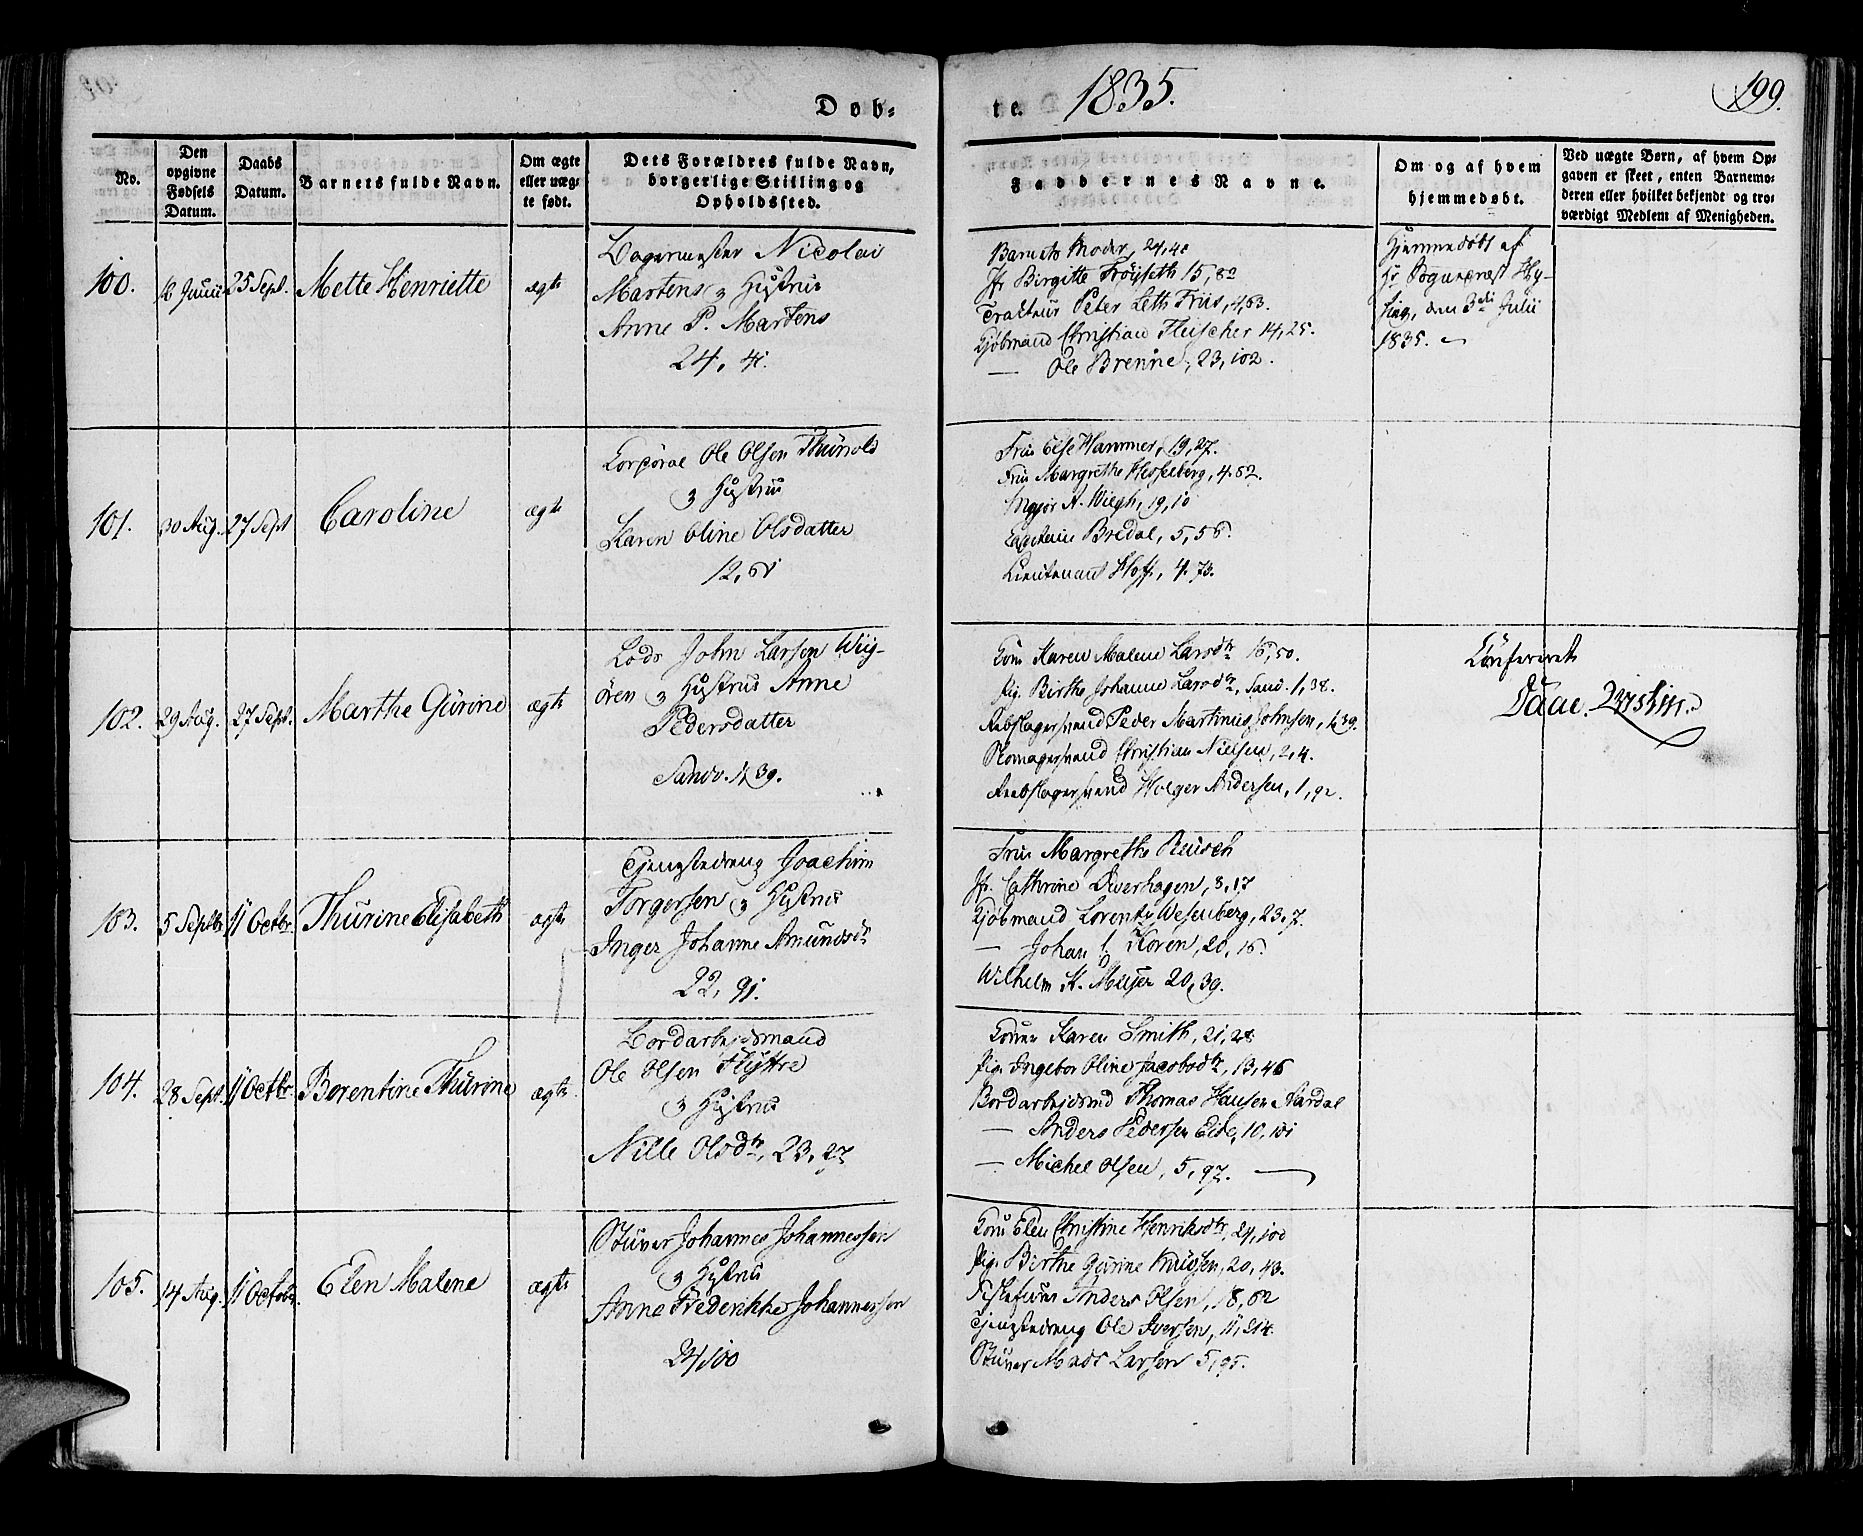 Døb=
te.
1835.
199.
No.
Den opgivne Fødsels Datum.
Daabs Datum.
Barnets fulde Navn.
Om ægte eller uæg-te født.
Dets Forældres fulde Navn, borgerlige Stilling og Opholdssted.
Faddernes Navne.
Om og af hvem hjemmedøbt.
Ved uægte Børn, af hvem Op-gaven er skeet, enten Barnemo-deren eller hvilket bekjendt og tro-værdigt Medlem af Menigheden.
100.
Junii
25 Sept.
Mette Henriette
ægte
Bagermester Nicolai
Martens og Hustrue
Anne P. Martens
24, 41.
Barnets Moder, 24,41
Jfr Birgitte Frøyseth 15,82
Tracteur Peter Leth Friis, 4,63.
Kjøbmand Christian Fleischer 14,25.
— Ole Brenne, 23,102.
Hjemmedøbt af
Hr Sogneprest Hy-
ting, den 3die Julii
1835.
101.
30 Aug.
27 Sept
Caroline
ægte
Corporal Ole Olsen Thunold
og Hustrue
Karen Oline Olsdatter
12,61
Frue Else Hammer, 19,27.
Frue Margrethe Hesselberg, 4.62.
Major A. Wiegh, 19,10
Capitain Bredal, 5,56.
Lieutenant Hoff, 4.73.
102.
29 Aug.
27 Sept.
Marthe Gurine
ægte
Lods John Larsen Wiig-
ören og Hustrue Anne
Pedersdatter
Sandv. 1,39.
Kone Karen Malene Larsdtr 16,50.
Pig. Birthe Johanne Larsdtr, Sand. 1,38.
Rebslagersvend Peder Martinus Johnsen, 1,39.
Skomagersvend Christian Nielsen, 2,4.
Rebslagersvend Holger Andersen, 1,92.
Confereret
Daae.
103.
5 Septbr
11 Octbr.
Thurine Elisabeth
ægte
Tjenestedreng Joachim
Torgersen og Hustrue
Inger Johanne Amundsdr
22, 91.
Frue Margrethe Reusch
Jfr. Cathrine Döverhagen, 3,17
Kjöbmand Lorentz Wesenberg, 23,7.
— Johan C. Koren, 20,16.
Wilhelm K. Meyer 20,39.
104.
28 Sept.
11 Octbr.
Berentine Thurine
ægte.
Bordarbejdsmand
Ole Olsen Flyttre
og Hustrue
Nille Olsdtr, 23,27
Konen Karen Smith, 21,28
Pig. Ingebor Oline Jacobsdtr, 13,46
Bordarbejdsmd Thomas Hansen Nordal
— Anders Pedersen Eide, 10,101
— Michel Olsen, 5,97.
105.
14 Aug.
11 Octobr.
Elen Malene
ægte
Stuver Johannes Johannessen
og Hustrue
Anne Frederikke Johannessen
24,100
Kone Elen Christine Henriksdtr, 24,100
Pig. Birthe Gurine Knudsen, 20,43.
Anders Olsen, 18,62
Tjenestedreng Ole Iversen, 11,214.
Stuver Mads Larsen 5,95.